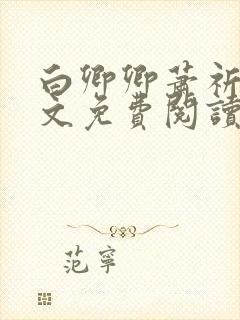 白卿卿蕭祈
文免費閱讀
范寧